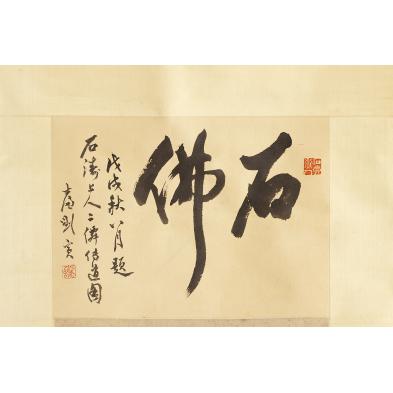 石佛
戊戌秋八月題
石濤上人二傳道圖